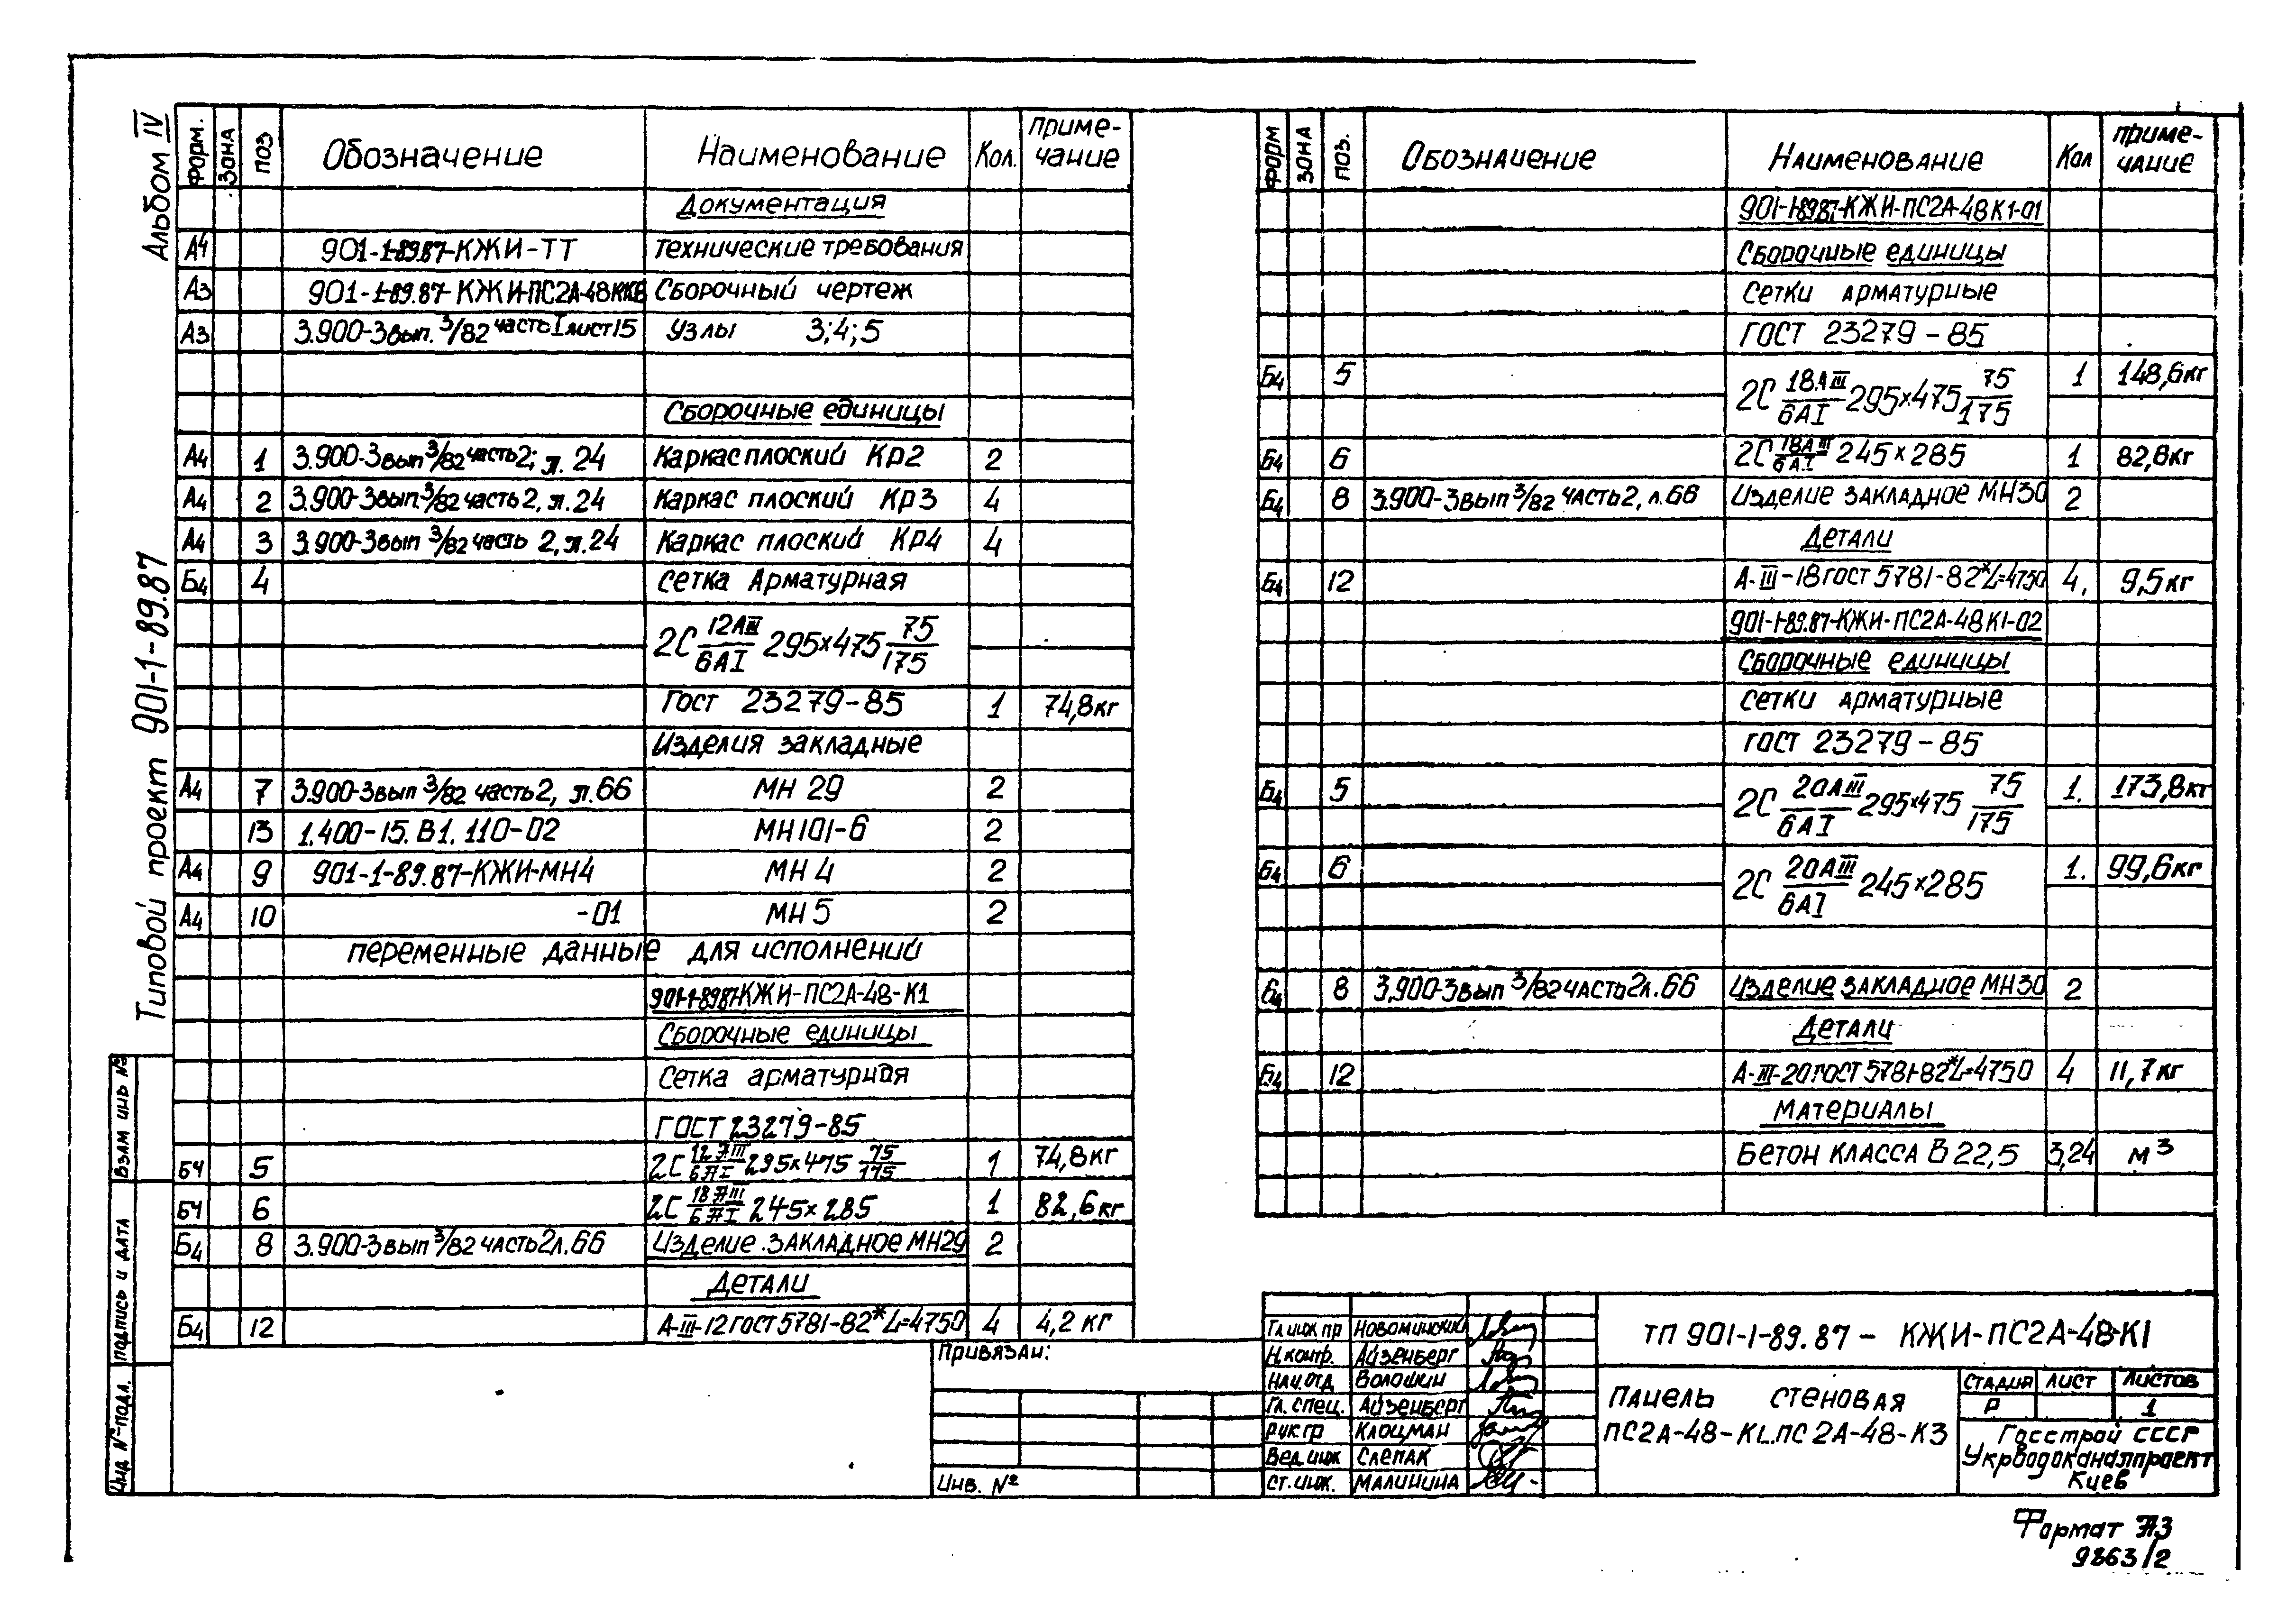 Альбом IV
Типовой проект 901-1-89.87
Форм. Зона Поз Обозначение Наименование Кол. Приме-чание
Документация
А4 901-1-89.87-КЖИ-ТТ Технические требования
А3 901-1-89.87-КЖИ-ПС2А-48К1СБ Сборочный чертеж
А3 3.900-3вып. 3/82 часть I лист15 Узлы 3;4;5
Сборочные единицы
А4 1 3.900-3вып 3/82 часть2; л. 24 Каркас плоский Кр2 2
А4 2 3.900-3вып. 3/82 часть2, л.24 Каркас плоский Кр3 4
А4 3 3.900-3вып 3/82 часть 2, л.24 Каркас плоский Кр4 4
Б4 4 Сетка Арматурная
2С 12АIII/6АI 295×475 75/175
Гост 23279-85 1 74,8кг
Изделия закладные
А4 7 3.900-3вып 3/82 часть2, л.66 МН 29 2
13 1.400-15.В1.110-02 МН101-6 2
А4 9 901-1-89.87-КЖИ-МН4 МН 4 2
А4 10 -01 МН 5 2
переменные данные для исполнений
901-1-89.87-КЖИ-ПС2А-48-К1
Сборочные единицы
Сетка арматурная
ГОСТ 23279-85
Б4 5 2С 12АIII/6АI 295×475 75/175 1 74,8кг
Б4 6 2С 18АIII/6АI 245×285 1 82,6кг
Б4 8 3.900-3вып 3/82 часть2л.66 Изделие закладное МН29 2
Детали
Б4 12 А-III-12 ГОСТ 5781-82* L=4750 4 4,2 кг
Форм Зона Поз. Обозначение Наименование Кол Приме-чание
901-1-89.87-КЖИ-ПС2А-48К1-01
Сборочные единицы
Сетки арматурные
ГОСТ 23279-85
Б4 5 2С 18АIII/6АI 295×475 75/175 1 148,6кг
Б4 6 2С 18АIII/6АI 245×285 1 82,8кг
Б4 8 3.900-3вып 3/82 часть2, л.66 Изделие закладное МН30 2
Детали
Б4 12 А-III-18 гост 5781-82* L=4750 4, 9,5кг
901-1-89.87-КЖИ-ПС2А-48К1-02
Сборочные единицы
Сетки арматурные
ГОСТ 23279-85
Б4 5 2С 20АIII/6АI 295×475 75/175 1. 173,8кг
Б4 6 2С 20АIII/6АI 245×285 1. 99,6кг
Б4 8 3.900-3вып 3/82 часть2л.66 Изделие закладное МН30 2
Детали
Б4 12 А-III-20 ГОСТ 5781-82* L=4750 4 11,7кг
Материалы
Бетон класса В 22,5 3,24 м3
Взам инв №
Подпись и дата
Инв № подл.
Привязан:
Инв. №
Гл инж пр Новоминский
Н.контр. Айзенберг
Нач.отд Волошин
Гл. спец. Айзенберг
Рук гр Клоцман
Вед инж Слепак
Ст.инж. Малинина
ТП 901-1-89.87 - КЖИ-ПС2А-48-К1
Панель стеновая
ПС2А-48-К1..ПС2А-48-К3
Стадия Лист Листов
Р 1
Госстрой СССР
Укрводоканалпроект
Киев
Формат А3
9863/2